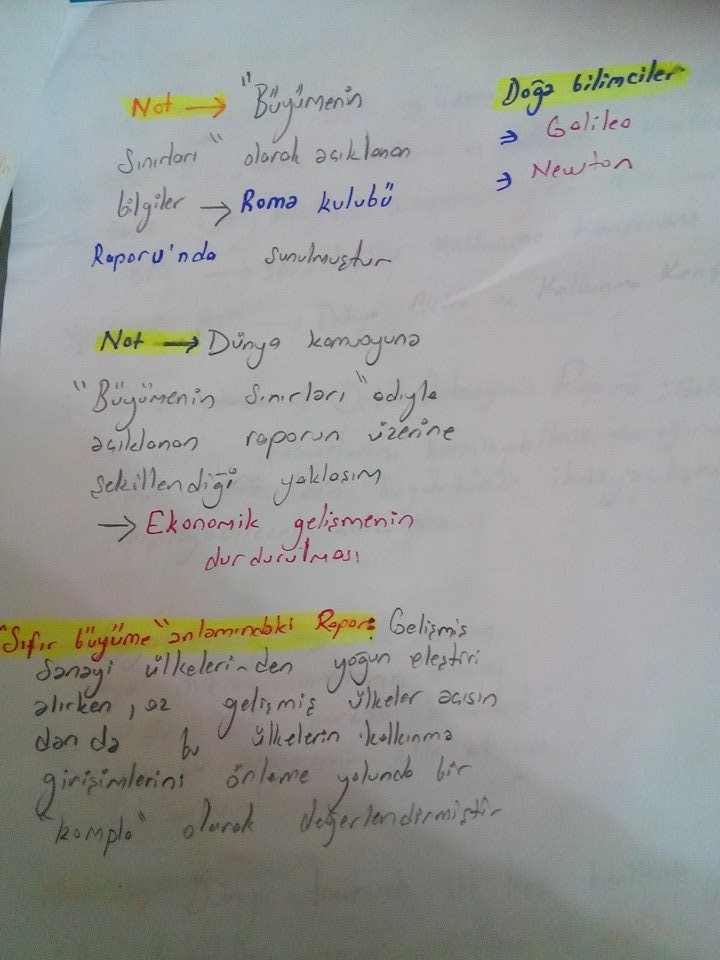 Not → "Büyümenin
Sınırları" olarak açıklanan
bilgiler → Roma kulubü
Raporu'nda sunulmuştur
Doğa bilimciler
→ Galileo
→ Newton
Not → Dünya kamuoyuna
"Büyümenin Sınırları" adıyla
açıklanan raporun üzerine
şekillendiği yaklaşım
→ Ekonomik gelişmenin
durdurulması
"Sıfır büyüme" anlamındaki Rapor: Gelişmiş
Sanayi ülkelerinden yoğun eleştiri
alırken, az gelişmiş ülkeler açısın
dan da bu ülkelerin kalkınma
girişimlerini önleme yolunda bir
"komplo" olarak değerlendirmiştir